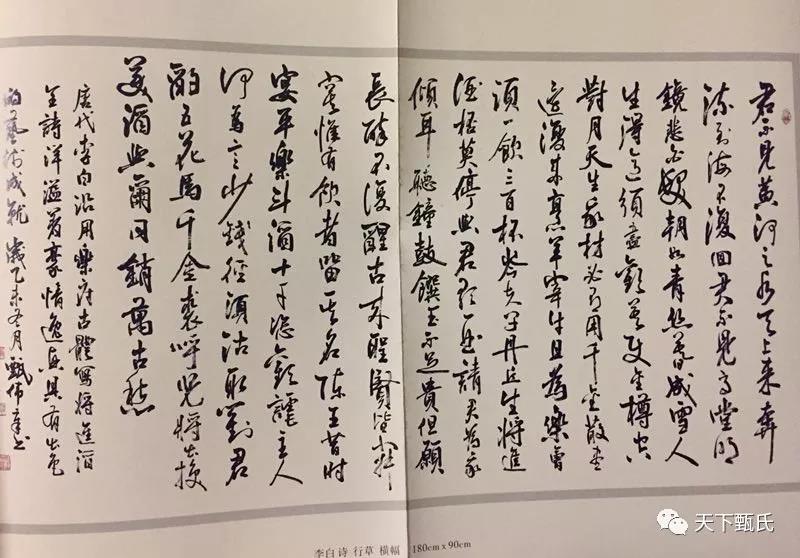 君不見黃河之水天上來奔
流到海不復回君不見高堂明
鏡悲白髮朝如青絲暮成雪人
生得意須盡歡莫使金樽空
對月天生我材必有用千金散盡
還復來烹羊宰牛且為樂會
須一飲三百杯岑夫子丹丘生將進
酒杯莫停與君歌一曲請君為我
傾耳聽鐘鼓饌玉不足貴但願
長醉不復醒古來聖賢皆寂
寞惟有飲者留其名陳王昔時
宴平樂斗酒十千恣歡謔主人
何為言少錢徑須沽取對君
酌五花馬千金裘呼兒將出換
美酒與爾同銷萬古愁
唐代李白沿用樂府古體寫將進酒
全詩洋溢著豪情逸興具有出色
的藝術成就 歲乙未冬月甄偉書
李白诗 行草 横幅 180cm x 90cm
天下甄氏